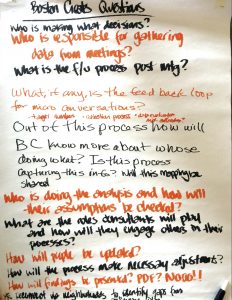 Boston Creates Questions
Who is making what decisions?
Who is responsible for gathering
data from meetings?
What is the f/u process post mtg?
What, if any, is the feed back loop
for micro conversations?
Out of this process how will
BC know more about whose
doing what? Is this process
capturing this info? Will this mapping be
shared
Who is doing the analysis and how will
their assumptions be checked?
What are the roles consultants will play
and how will they engage others in their
processes?
How will people be updated?
How will the process make necessary adjustments?
How will findings be presented? PDF? NOOO!!
neighborhoods to identify gaps